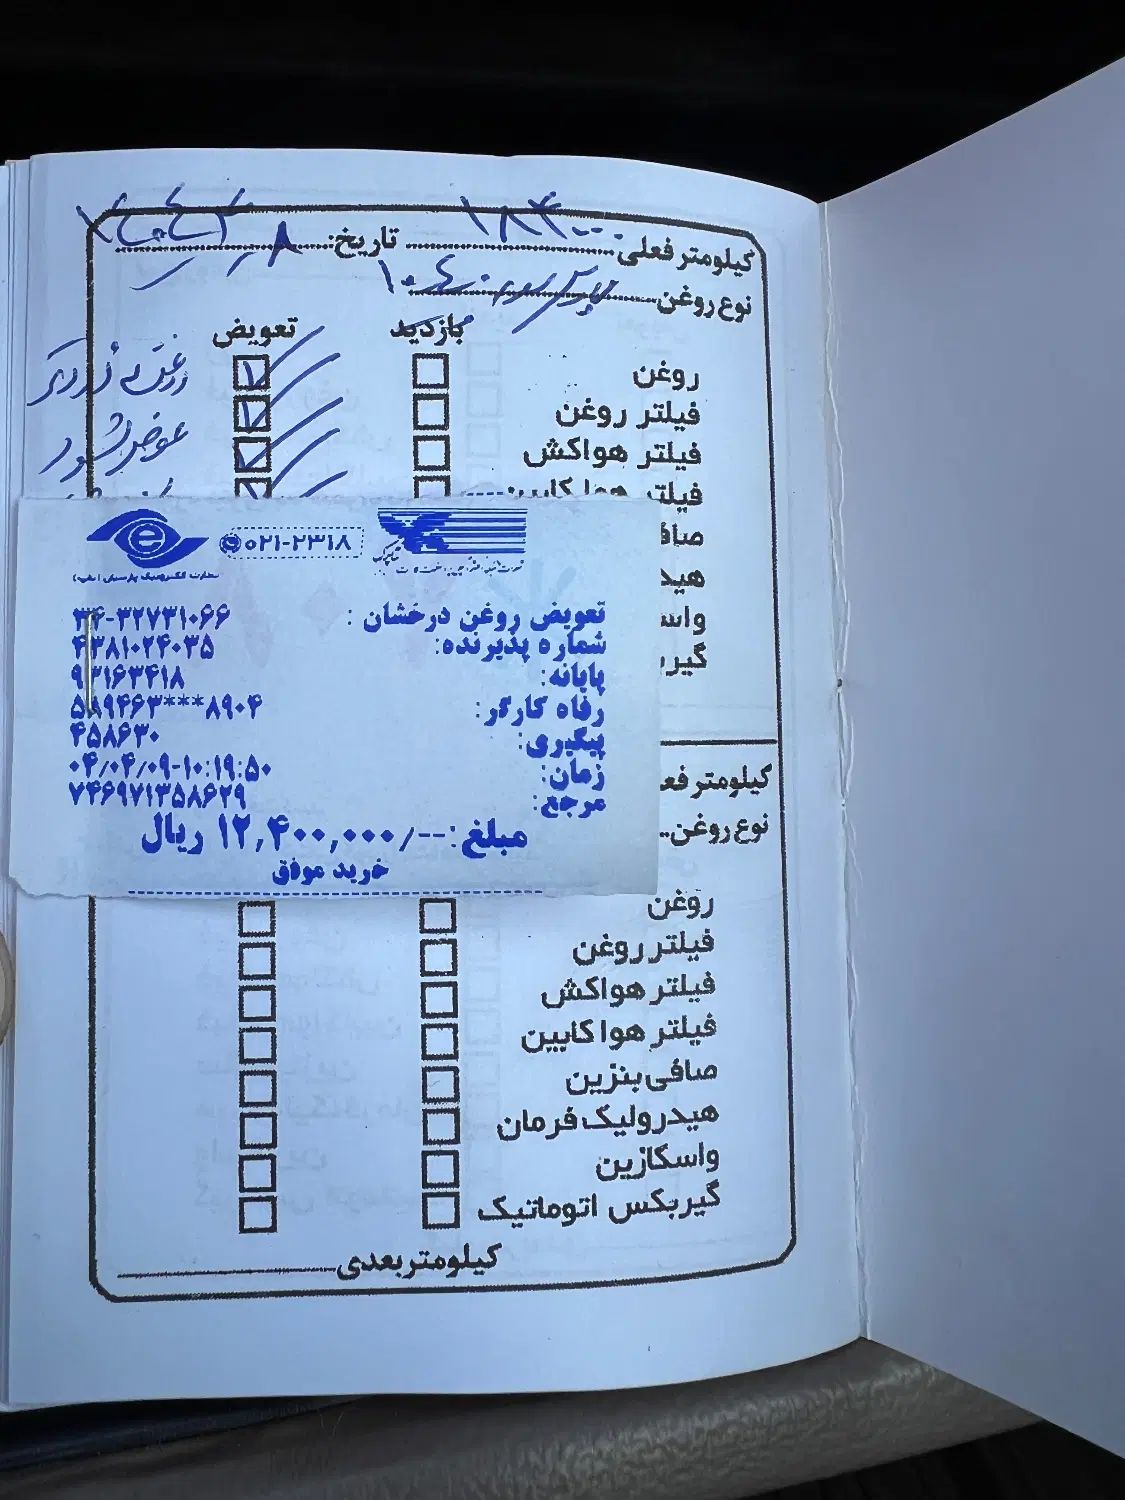 کیلومتر فعلی ۱۸۴۰۰۰ تاریخ: ۸
نوع روغن ۱۰
بازدید تعویض
روغن
فیلتر روغن
فیلتر هواکش
عوض شود
فیلتر هوا کابین
صاف
هید
واس
گیر
۰۲۱-۲۳۱۸
تعویض روغن درخشان : ۳۴-۳۲۷۳۱۰۶۶
شماره پذیرنده: ۴۳۸۱۰۲۴۰۳۵
پایانه: ۹۳۱۶۳۴۱۸
رفاه کارگر: ۵۸۹۴۶۳***۸۹۰۴
پیگیری: ۴۵۸۶۳۰
زمان: ۰۴/۰۴/۰۹-۱۰:۱۹:۵۰
مرجع: ۷۴۶۹۷۱۳۵۸۶۲۹
مبلغ:--/۱۲,۴۰۰,۰۰۰ ریال
خرید موفق
کیلومتر فع
نوع روغن
روغن
فیلتر روغن
فیلتر هواکش
فیلتر هوا کابین
صافی بنزین
هیدرولیک فرمان
واسکازین
گیربکس اتوماتیک
کیلومتر بعدی